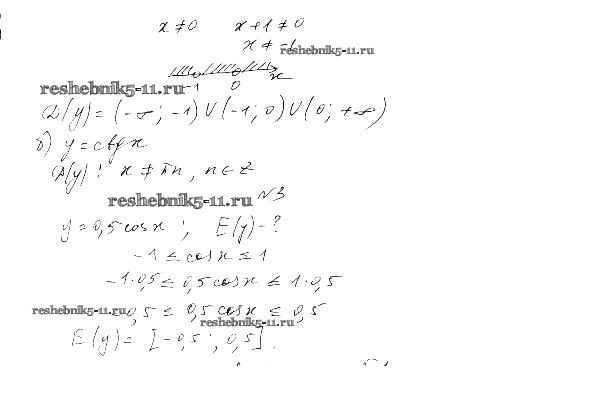 x ≠ 0 x + 1 ≠ 0
x ≠ -1
reshebnik5-11.ru
-1 0 x
reshebnik5-11.ru
D(y) = (-∞; -1) U (-1; 0) U (0; +∞)
б) y = ctg x
D(y): x ≠ πn, n ∈ Z
reshebnik5-11.ru №3
y = 0,5 cos x ; E(y) - ?
-1 ≤ cos x ≤ 1
-1·0,5 ≤ 0,5 cos x ≤ 1·0,5
reshebnik5-11.ru 0,5 ≤ 0,5 cos x ≤ 0,5
reshebnik5-11.ru
E(y) = [-0,5; 0,5].